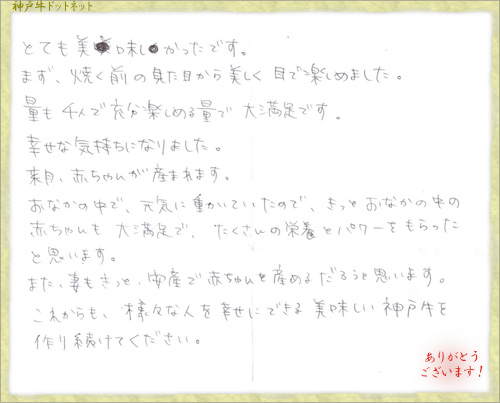 神戸牛ドットネット
とても美味しかったです。
まず、焼く前の見た目から美しく目で楽しめました。
量も4人で充分楽しめる量で大満足です。
幸せな気持ちになりました。
来月、赤ちゃんが産まれます。
おなかの中で、元気に動いていたので、きっとおなかの中の
赤ちゃんも大満足で、たくさんの栄養とパワーをもらった
と思います。
また、妻もきっと、安産で赤ちゃんを産めるだろうと思います。
これからも、様々な人を幸せにできる美味しい神戸牛を
作り続けてください。
ありがとう
ございます!